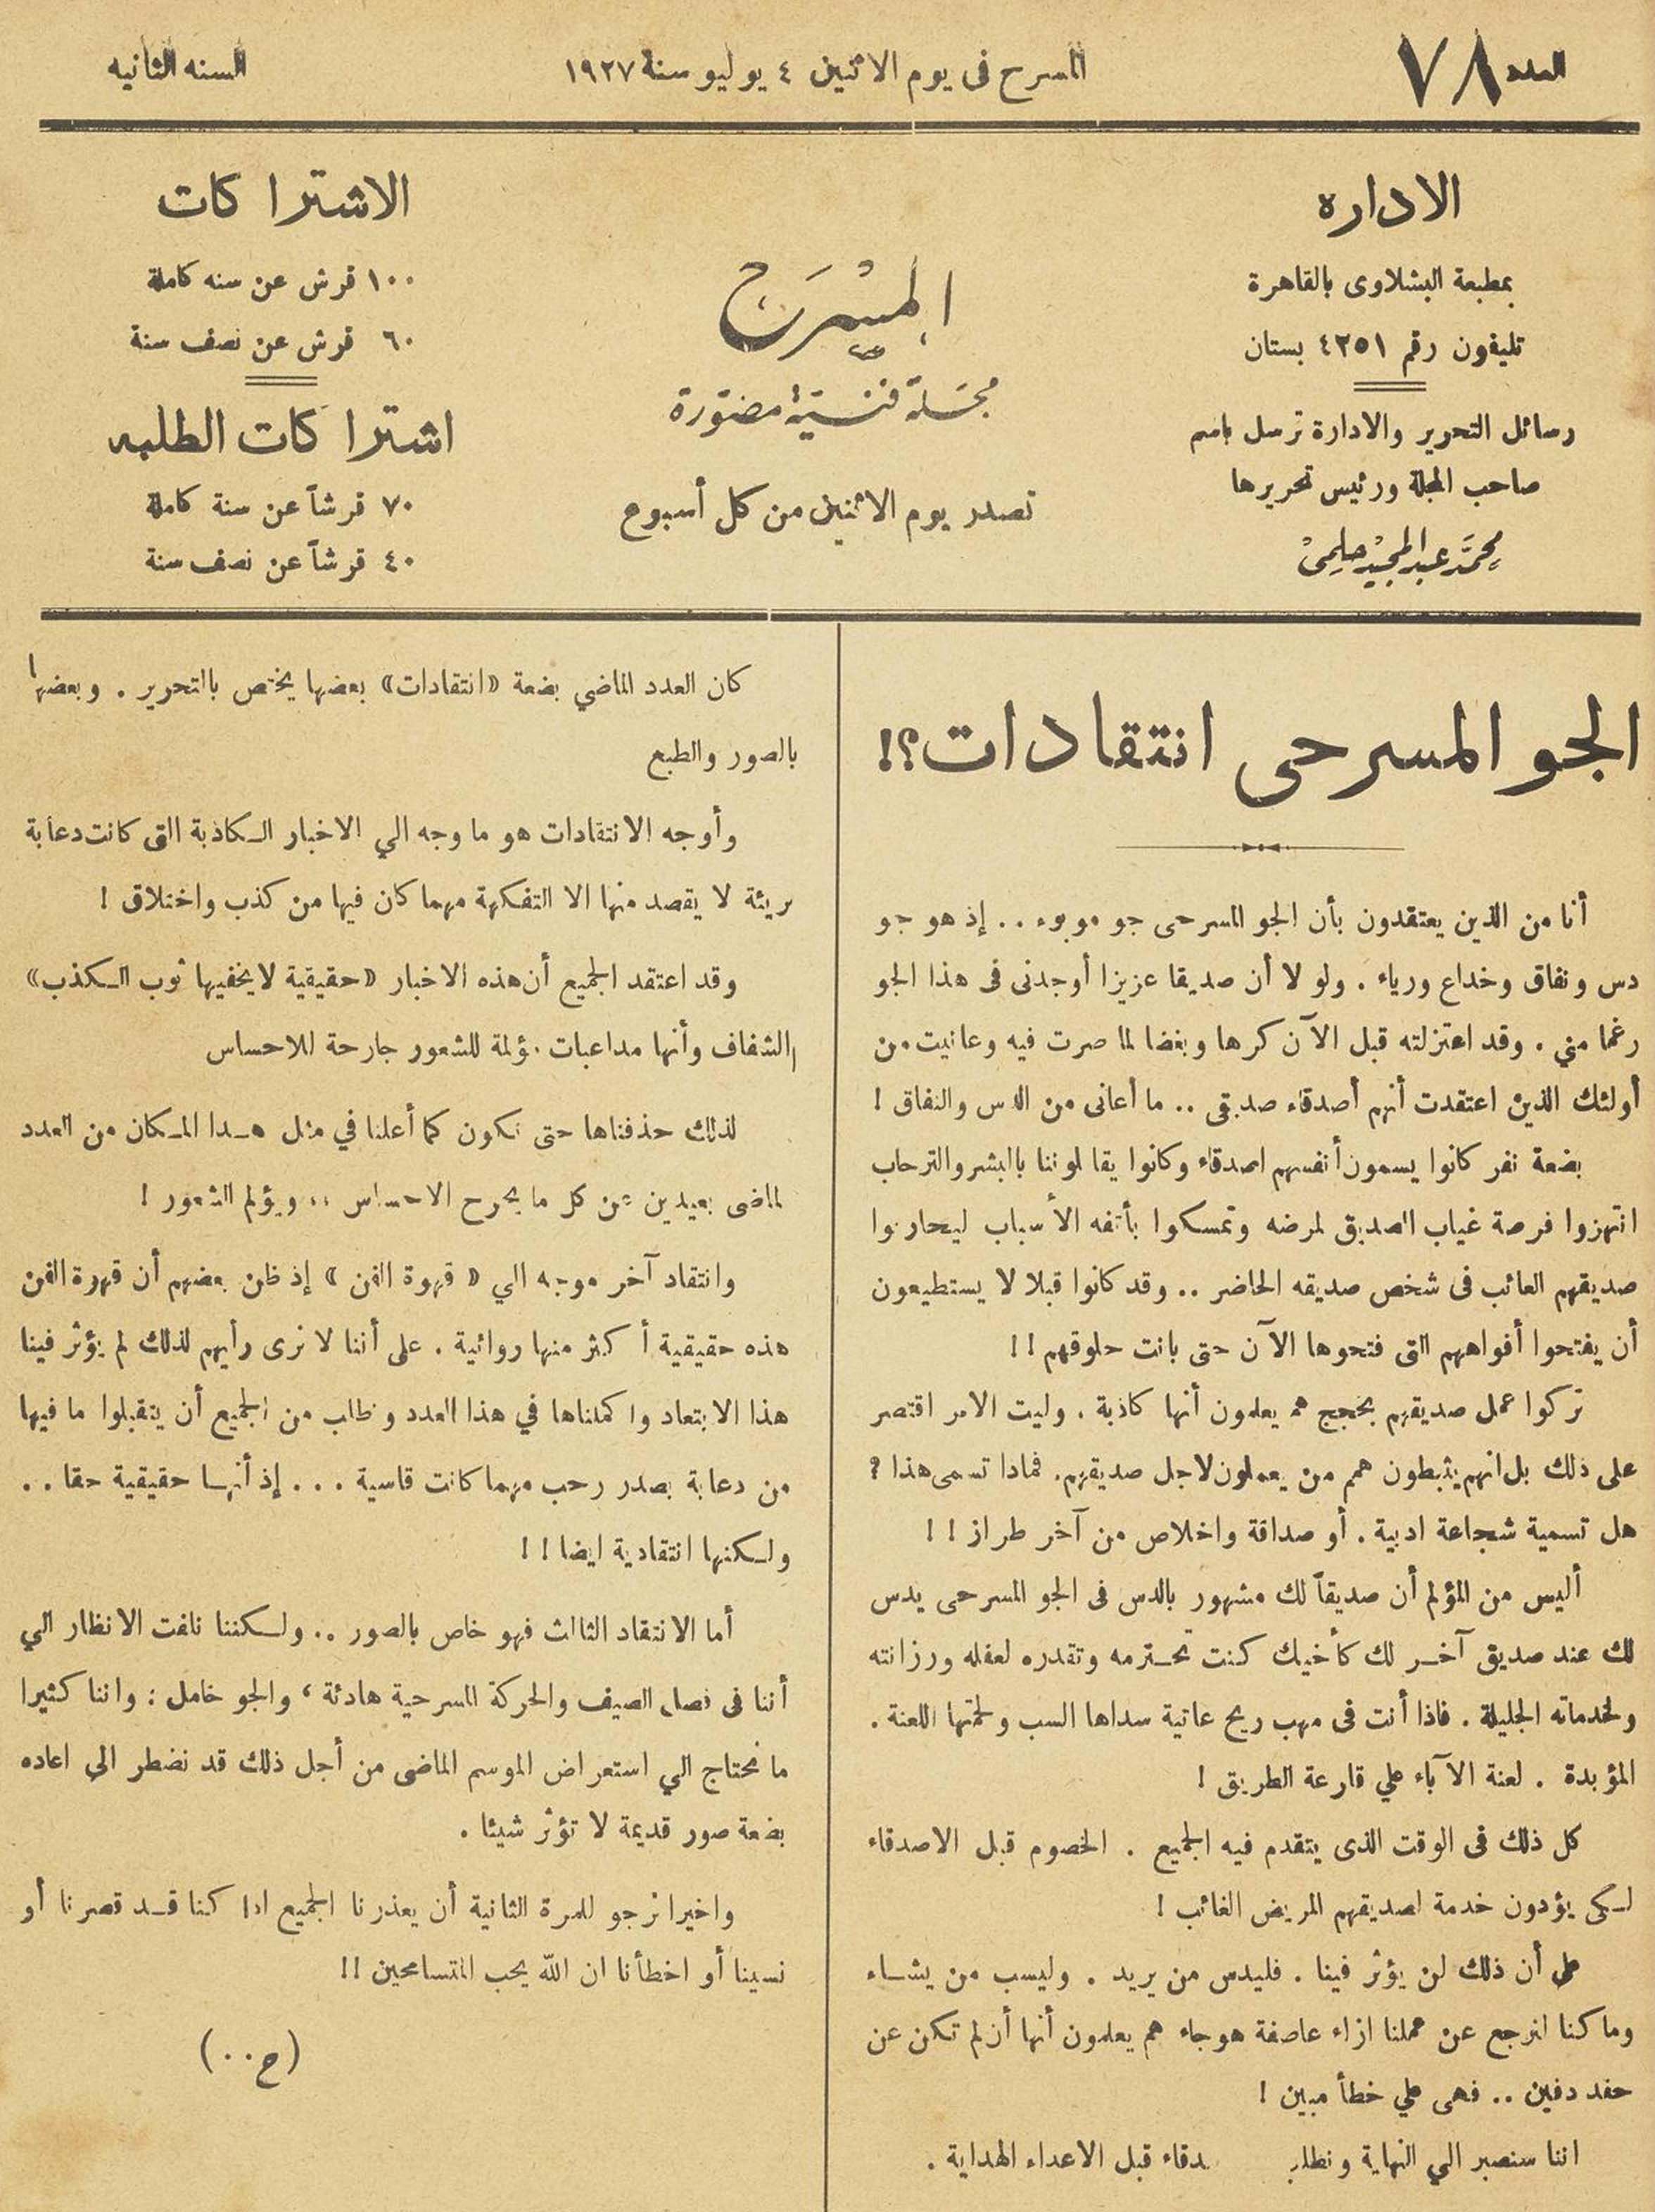 العدد ٧٨
المسرح فى يوم الاثنين ٤ يوليو سنة ١٩٢٧
السنه الثانيه
الاداره
بمطبعة البشلاوى بالقاهرة
تليفون رقم ٤٢٥١ بستان
رسائل التحرير والادارة ترسل باسم
صاحب المجلة ورئيس تحريرها
محمد عبد المجيد حلمى
المسرح
مجلة فنية مصورة
تصدر يوم الاثنين من كل أسبوع
الاشتراكات
١٠٠ قرش عن سنه كاملة
٦٠ قرش عن نصف سنة
اشتراكات الطلبه
٧٠ قرشاً عن سنة كاملة
٤٠ قرشاً عن نصف سنة
الجو المسرحى انتقادات؟!
أنا من الذين يعتقدون بأن الجو المسرحى جو موبوء .. إذ هو جو
دس ونفاق وخداع ورياء . ولو لا أن صديقا عزيزا أوجدنى فى هذا الجو
رغما مني . وقد اعتزلته قبل الآن كرها وبغضا لما صرت فيه وعانيت من
أولئك الذين اعتقدت أنهم أصدقاء صديقى .. ما أعانى من الدس والنفاق !
بضعة نفر كانوا يسمون أنفسهم اصدقاء وكانوا يقالوننا بالبشر والترحاب
انتهزوا فرصة غياب الصديق لمرضه وتمسكوا بأتفه الأسباب ليحاربوا
صديقهم الغائب فى شخص صديقه الحاضر .. وقد كانوا قبلا لا يستطيعون
أن يفتحوا أفواههم التى فتحوها الآن حتى بانت حلوقهم !!
تركوا عمل صديقهم بحجج هم يعلمون أنها كاذبة . وليت الامر اقتصر
على ذلك بل انهم يثبطون همم من يعملون لاجل صديقهم. فماذا تسمى هذا ؟
هل تسمية شجاعة ادبية . أو صداقة واخلاص من آخر طراز !!
أليس من المؤلم أن صديقاً لك مشهور بالدس فى الجو المسرحى يدس
لك عند صديق آخر لك كأخيك كنت تحترمه وتقدره لعقله ورزانته
ولخدماته الجليلة . فاذا أنت فى مهب ريح عاتية سداها السب ولحمتها اللعنة .
المؤبدة . لعنة الآباء علي قارعة الطريق !
كل ذلك فى الوقت الذى يتقدم فيه الجميع . الخصوم قبل الاصدقاء
لكى يؤدون خدمة لصديقهم المريض الغائب !
على أن ذلك لن يؤثر فينا . فليدس من يريد . وليسب من يشاء
وما كنا لنرجع عن عملنا ازاء عاصفة هوجاء هم يعلمون أنها أن لم تكن عن
حقد دفين .. فهى علي خطأ مبين !
اننا سنصبر الي النهاية ونطلب دقاء قبل الاعداء الهداية .
كان العدد الماضي بضعة «انتقادات» بعضها يختص بالتحرير . وبعضها
بالصور والطبع
وأوجه الانتقادات هو ما وجه الي الاخبار الكاذبة التى كانت دعابة
بريئة لا يقصد منها الا التفكهة مهما كان فيها من كذب واختلاق !
وقد اعتقد الجميع أن هذه الاخبار «حقيقية لا يخفيها ثوب الكذب»
الشفاف وأنها مداعبات مؤلمة للشعور جارحة للاحساس
لذلك حذفناها حتى نكون كما أعلنا في مثل هدا المكان من العدد
لماضى بعيدين عن كل ما يجرح الاحساس .. ويؤلم الشعور !
وانتقاد آخر موجه الي « قهوة الفن » إذ ظن بعضهم أن قهوة الفن
هذه حقيقية أكثر منها روائية . على أننا لا نرى رأيهم لذلك لم يؤثر فينا
هذا الابتعاد واكملناها في هذا العدد ونطلب من الجميع أن يتقبلوا ما فيها
من دعابة بصدر رحب مهما كانت قاسية ... إذ أنها حقيقية حقا ..
ولكنها انتقادية ايضا !!
أما الانتقاد الثالث فهو خاص بالصور .. ولكننا نلفت الانظار الي
أننا فى فصل الصيف والحركة المسرحية هادئة ، والجو خامل : واننا كثيرا
ما نحتاج الي استعراض الموسم الماضى من أجل ذلك قد نضطر الي اعاده
بضعة صور قديمة لا تؤثر شيئا .
واخيرا نرجو للمرة الثانية أن يعذرنا الجميع اذا كنا قد قصرنا أو
نسينا أو اخطأنا ان الله يحب المتسامحين !!
(ح..)